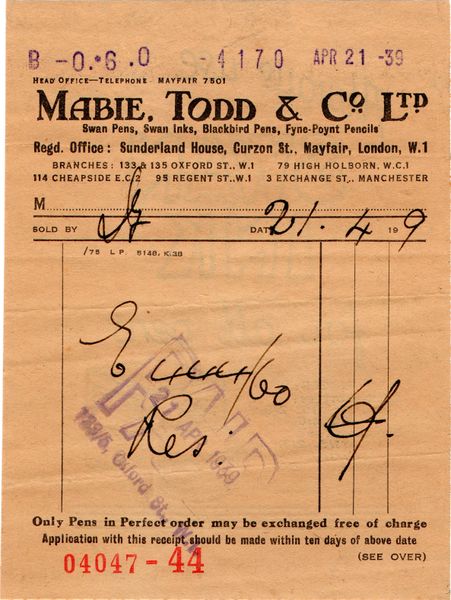 B -0.6.0 -4170 APR 21 -39
HEAD OFFICE—TELEPHONE MAYFAIR 7501
MABIE, TODD & Co LTD
Swan Pens, Swan Inks, Blackbird Pens, Fyne-Poynt Pencils
Regd. Office: Sunderland House, Curzon St., Mayfair, London, W.1
BRANCHES: 133 & 135 OXFORD ST., W.1 79 HIGH HOLBORN, W.C.1
114 CHEAPSIDE E.C.2 95 REGENT ST., W.1 3 EXCHANGE ST., MANCHESTER
M
SOLD BY DATE 21. 4 199
/75 L P. 5148. K.38
E 444/60
Res:
6/.
PAID
21 APR 1939
133/5, Oxford St., W.1
Only Pens in Perfect order may be exchanged free of charge
Application with this receipt should be made within ten days of above date
(SEE OVER)
04047-44